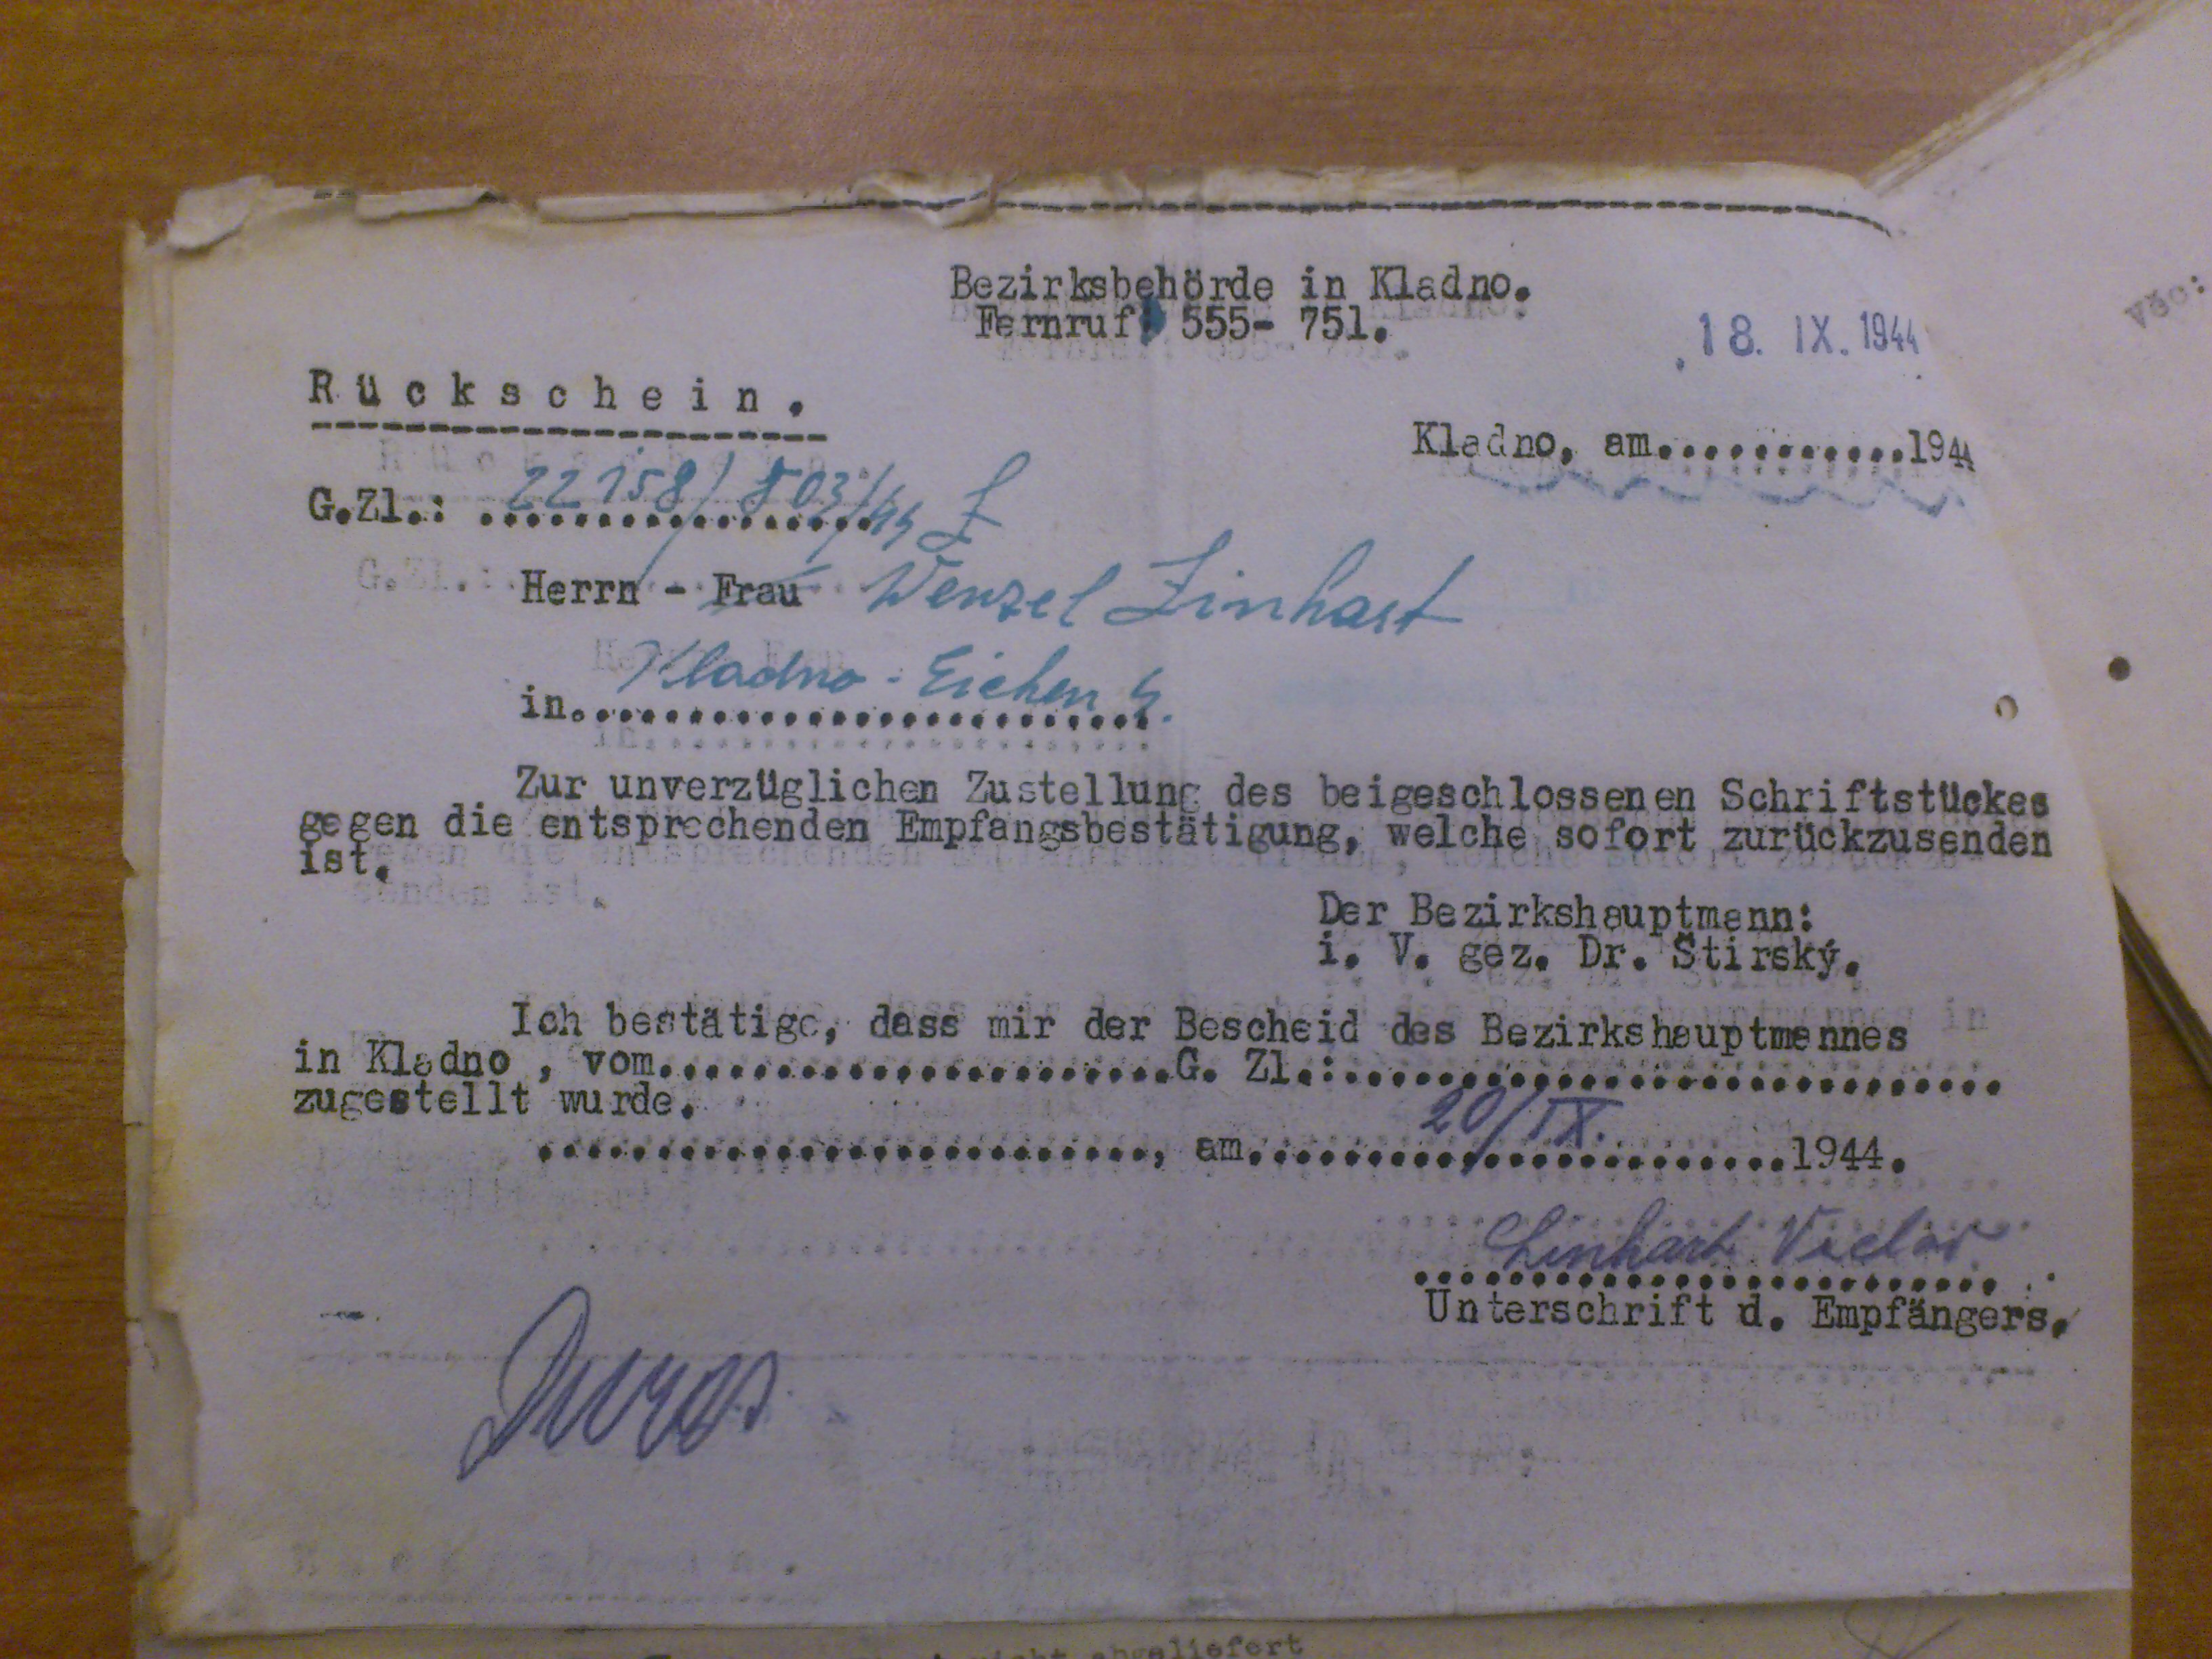 Bezirksbehörde in Kladno.
Fernruf: 555- 751.
18. IX. 1944
Rückschein.
Kladno, am............1944
G.Zl.: 22158/ 503/44
Herrn - Frau Wenzel Linhart
in Kladno - Eichen 4.
Zur unverzüglichen Zustellung des beigeschlossenen Schriftstückes
gegen die entsprechenden Empfangsbestätigung, welche sofort zurückzusenden
ist.
Der Bezirkshauptmann:
i. V. gez. Dr. Štirský.
Ich bestätige, dass mir der Bescheid des Bezirkshauptmannes
in Kladno , vom......................G. Zl.:.............................
zugestellt wurde.
..........................., am 20/IX. 1944.
Linhart
Unterschrift d. Empfängers.
Věc:
nicht abgeliefert